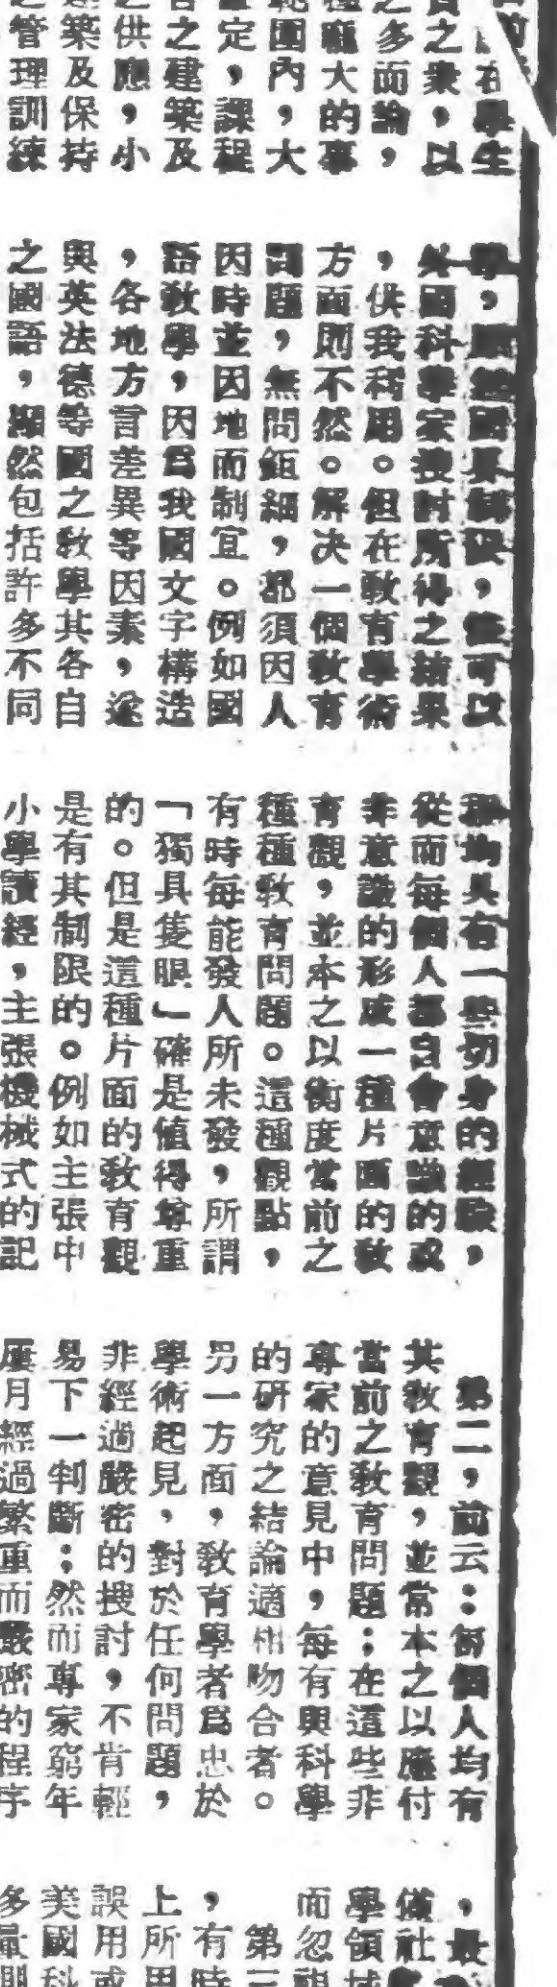 在學生
之衆，以
之多而論，
種龐大的事
範圍內，大
定，課程
之建築及
之供應，小
築及保持
之管理訓練
，國界，可以
外國科學家搜討所得之結果
，供我利用。但在教育學術
方面則不然。解決一個教育
問題，無問鉅細，都須因人
因時並因地而制宜。例如國
語教學，因爲我國文字構造
，各地方言差異等因素，遂
與英法德等國之教學其各自
之國語，顯然包括許多不同
均具有一些切身的經驗，
從而每個人都自會意識的或
非意識的形成一種片面的教
育觀，並本之以衡度當前之
種種教育問題。這種觀點，
有時每能發人所未發，所謂
「獨具隻眼」確是值得尊重
的。但是這種片面的教育觀
是有其制限的。例如主張中
小學讀經，主張機械式的記
第二，前云：每個人均有
其教育觀，並常本之以應付
當前之教育問題；在這些非
專家的意見中，每有與科學
的研究之結論適相吻合者。
另一方面，教育學者爲忠於
學術起見，對於任何問題，
非經過嚴密的搜討，不肯輕
易下一判斷；然而專家窮年
屢月經過繁重而嚴密的程序
，最
社
學領域
而忽視
第三
，有時
上所用
誤用或
美國科
多量